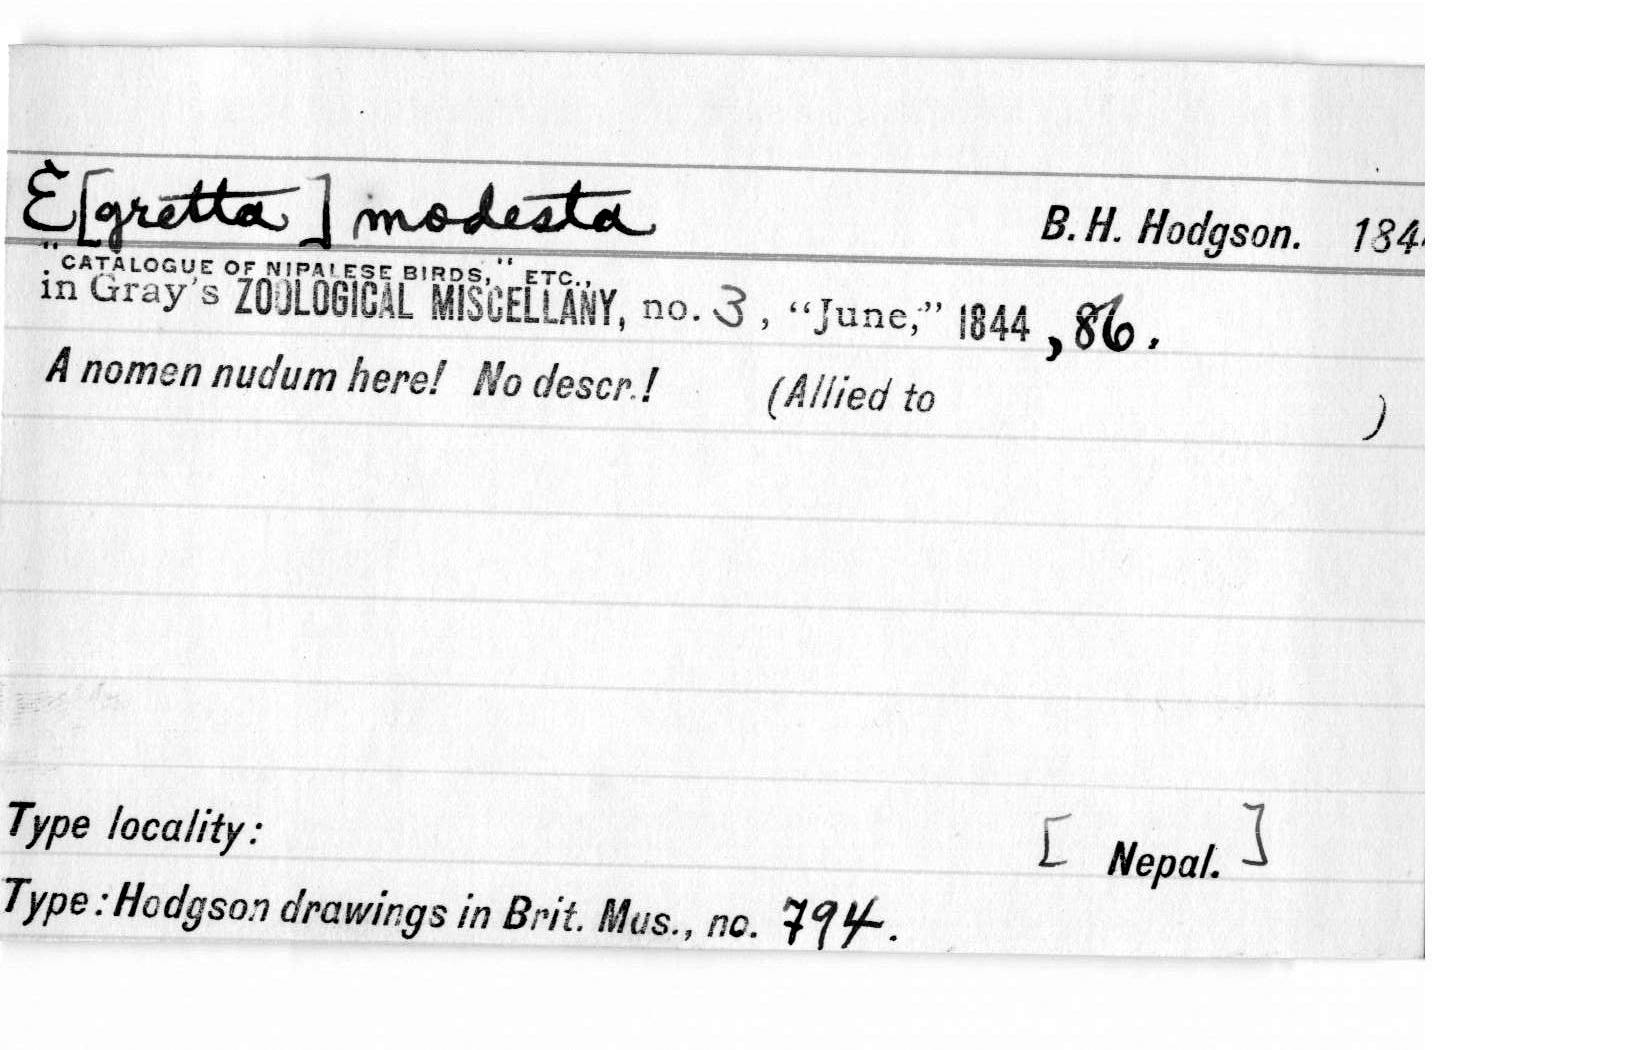 E[gretta] modesta B. H. Hodgson. 184
"CATALOGUE OF NIPALESE BIRDS," ETC.,
in Gray's ZOOLOGICAL MISCELLANY, no. 3, “June,” 1844, 86.
A nomen nudum here! No descr.! (Allied to )
Type locality: [ Nepal. ]
Type: Hodgson drawings in Brit. Mus., no. 794.